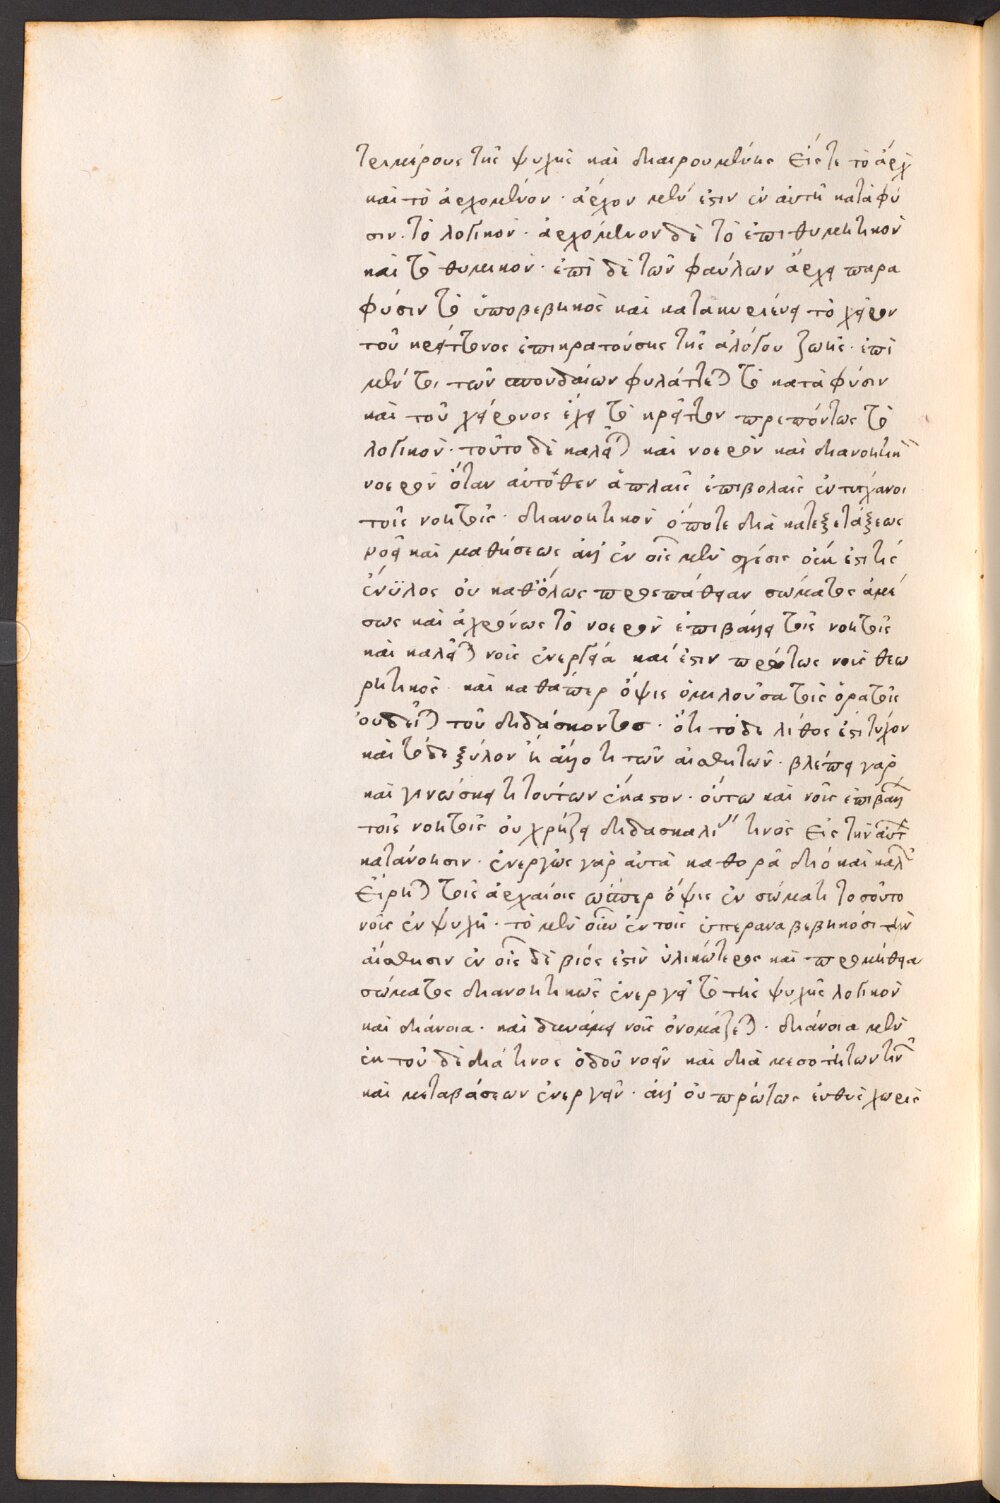 τριμέρους τῆς ψυχῆς καὶ διαιρουμένης εἴς τε τὸ ἄρχ
καὶ τὸ ἀρχομένον · ἄρχον μὲν ἐστιν ἐν αὐτῇ κατὰ φύ
σιν · τὸ λογικὸν · ἀρχόμενον δὲ τὸ ἐπιθυμητικὸν
καὶ τὸ θυμικὸν · ἐπὶ δὲ τῶν φαύλων ἄρχει παρα
φύσιν τὸ ὑποβεβηκὸς καὶ κατακυριεύει τὸ χεῖρον
τοῦ κρείττονος ἐπικρατούσης τῆς ἀλόγου ζωῆς · ἐπὶ
μέν τοι τῶν σπουδαίων φυλάττεται τὸ κατὰ φύσιν
καὶ τοῦ χείρονος ἔχει τὸ κρεῖττον πρεπόντως τὸ
λογικὸν · τοῦτο δὲ καλεῖται καὶ νοερὸν καὶ διανοητικὸν
νοερὸν ὅταν αὐτόθεν ἁπλαῖς ἐπιβολαῖς ἐντυγχάνοι
τοῖς νοητοῖς · διανοητικὸν ὁπότε διὰ κατεξετάξεως
νοεῖ καὶ μαθήσεως ἀλλ' ἐν οἷς μὲν σχέσις οὐκ ἐστι τίς
ἔνϋλος οὐ καθόλως προσπάθειαν σώματος ἀμέ
σως καὶ ἀχρόνως τὸ νοερὸν ἐπιβάλλει τοῖς νοητοῖς
καὶ καλεῖται νοῦς ἐνεργείᾳ καί ἐστιν πρώτως νοῦς θεω
ρητικὸς · καὶ καθάπερ ὄψις ὁμιλοῦσα τοῖς ὁρατοῖς
οὐ δεῖται τοῦ διδάσκοντος · ὅτι τόδε λίθος ἐστὶ τυχὸν
καὶ τόδε ξύλον ἢ ἄλλό τι τῶν αἰσθητῶν · βλέπει γὰρ
καὶ γινώσκει τι τούτων ἕκαστον · οὕτω καὶ νοῦς ἐπιβάλλ
τοῖς νοητοῖς οὐ χρῄζει διδασκαλί τινὸς εἰς τὴν αὐτ
κατανόησιν · ἐνεργῶς γὰρ αὐτὰ καθορᾷ διό καὶ καλ
εἴρηται τοῖς ἀρχαίοις ὥσπερ ὄψις ἐν σώματι τοσοῦτο
νοῦς ἐν ψυχῇ · τὸ μὲν οὖν ἐν τοῖς ὑπεραναβεβηκόσι τὴν
αἴσθησιν ἐν οἷς δὲ βιός ἐστὶν ὑλικώτερος καὶ προμήθεια
σώματος διανοητικῶς ἐνεργεῖ τὸ τῆς ψυχῆς λογικὸν
καὶ διάνοια · καὶ δυνάμει νοῦς ὀνομάζεται · διάνοια μὲν
ἐκ τοῦ δὲ διά τινος ὁδοῦ νοεῖν καὶ διὰ μεσοτήτων τιν
καὶ μεταβάσεων ἐνεργεῖν · ἀλλ' οὐ πρώτως εὐθὺς χωρὶς